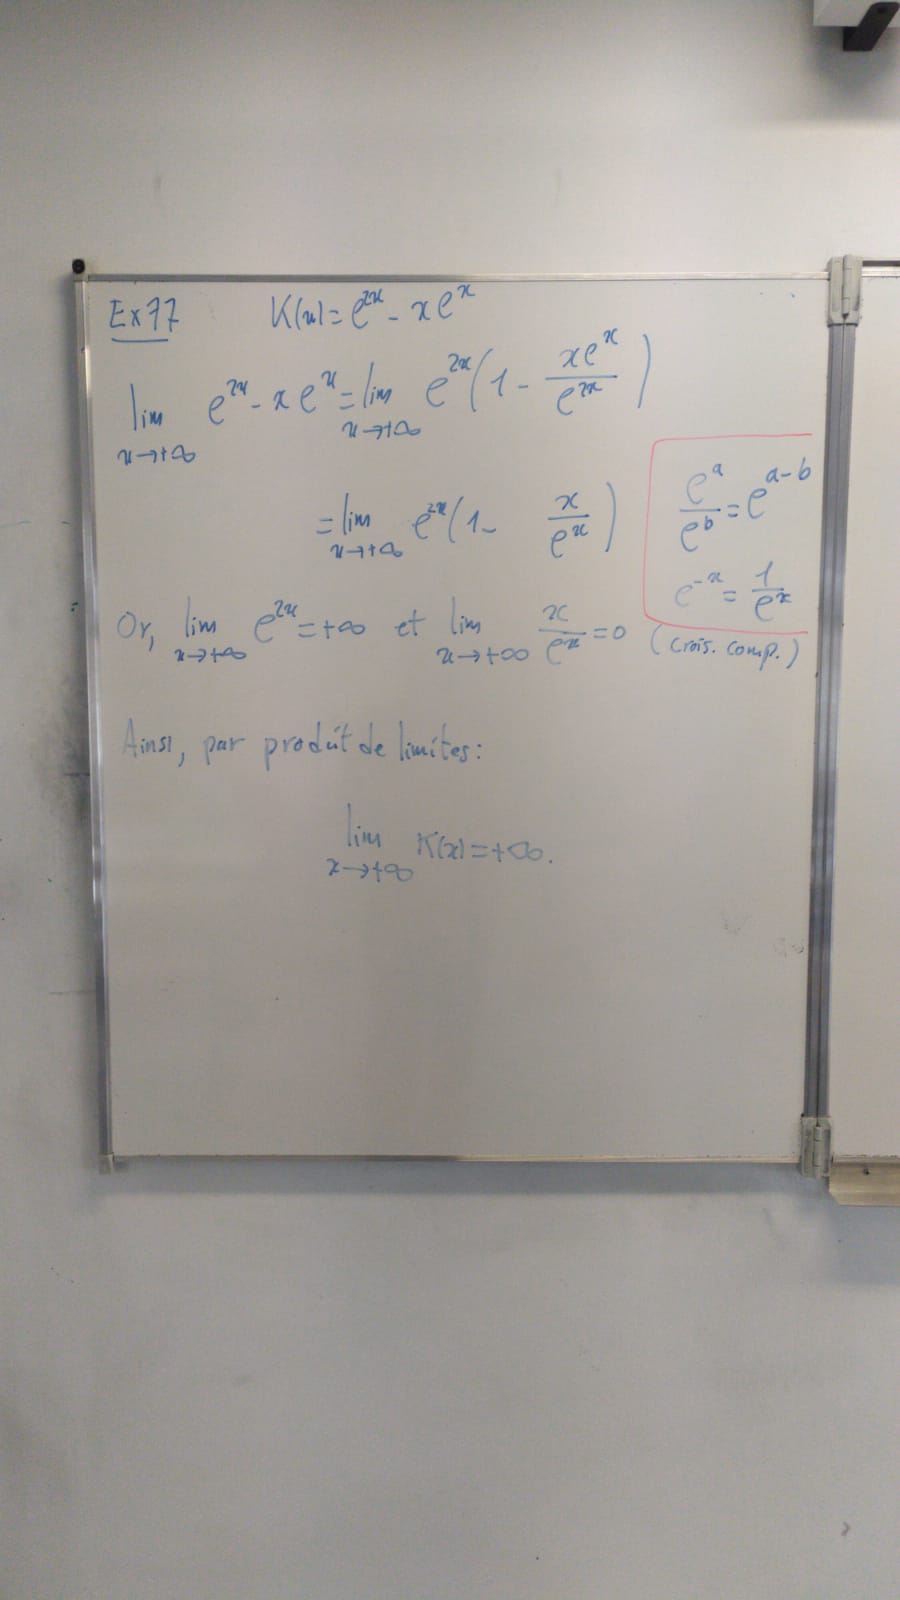 Ex 77 K(x) = e^{2x} - x e^x
lim_{x→+∞} e^{2x} - x e^x = lim_{x→+∞} e^{2x} (1 - \frac{x e^x}{e^{2x}})
= lim_{x→+∞} e^{2x} (1 - \frac{x}{e^x})
\frac{e^a}{e^b} = e^{a-b}
e^{-x} = \frac{1}{e^x}
Or, lim_{x→+∞} e^{2x} = +∞ et lim_{x→+∞} \frac{x}{e^x} = 0 (crois. comp.)
Ainsi, par produit de limites :
lim_{x→+∞} K(x) = +∞.